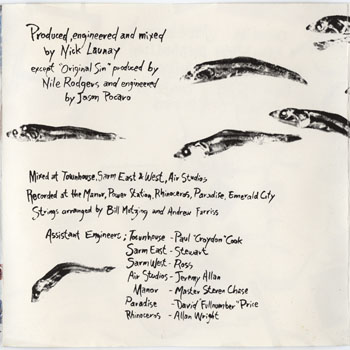 Produced, engineered and mixed
by Nick Launay
except "Original Sin" produced by
Nile Rodgers and engineered
by Jason Pocaro
Mixed at Townhouse, Sarm East & West, Air Studios
Recorded at the Manor, Power Station, Rhinoceros, Paradise, Emerald City
Strings arranged by Bill Motzing and Andrew Farriss
Assistant Engineers; Townhouse - Paul "Croydon" Cook
Sarm East - Stewart
Sarm West - Ross
Air Studios - Jeremy Allan
Manor - Master Steven Chase
Paradise - David "Fullnumber" Price
Rhinoceros - Allan Wright